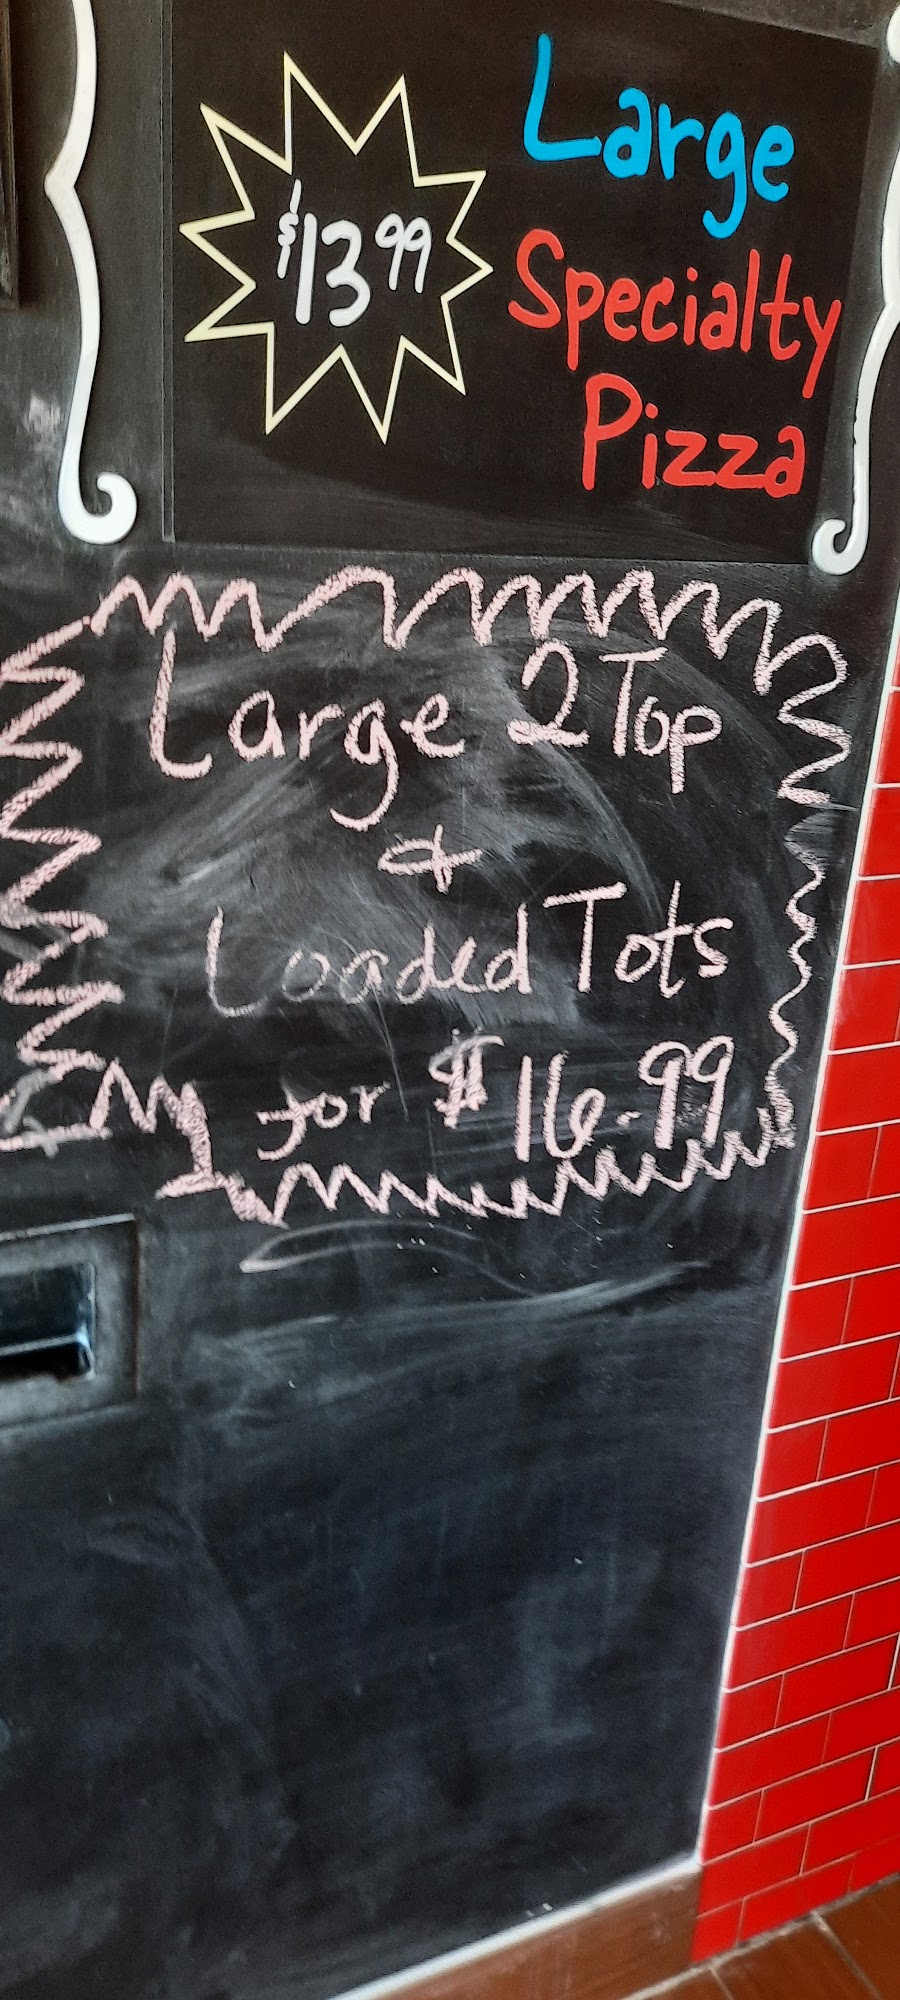 $13.99
Large
Specialty
Pizza
Large 2 Top
&
Loaded Tots
for $16.99